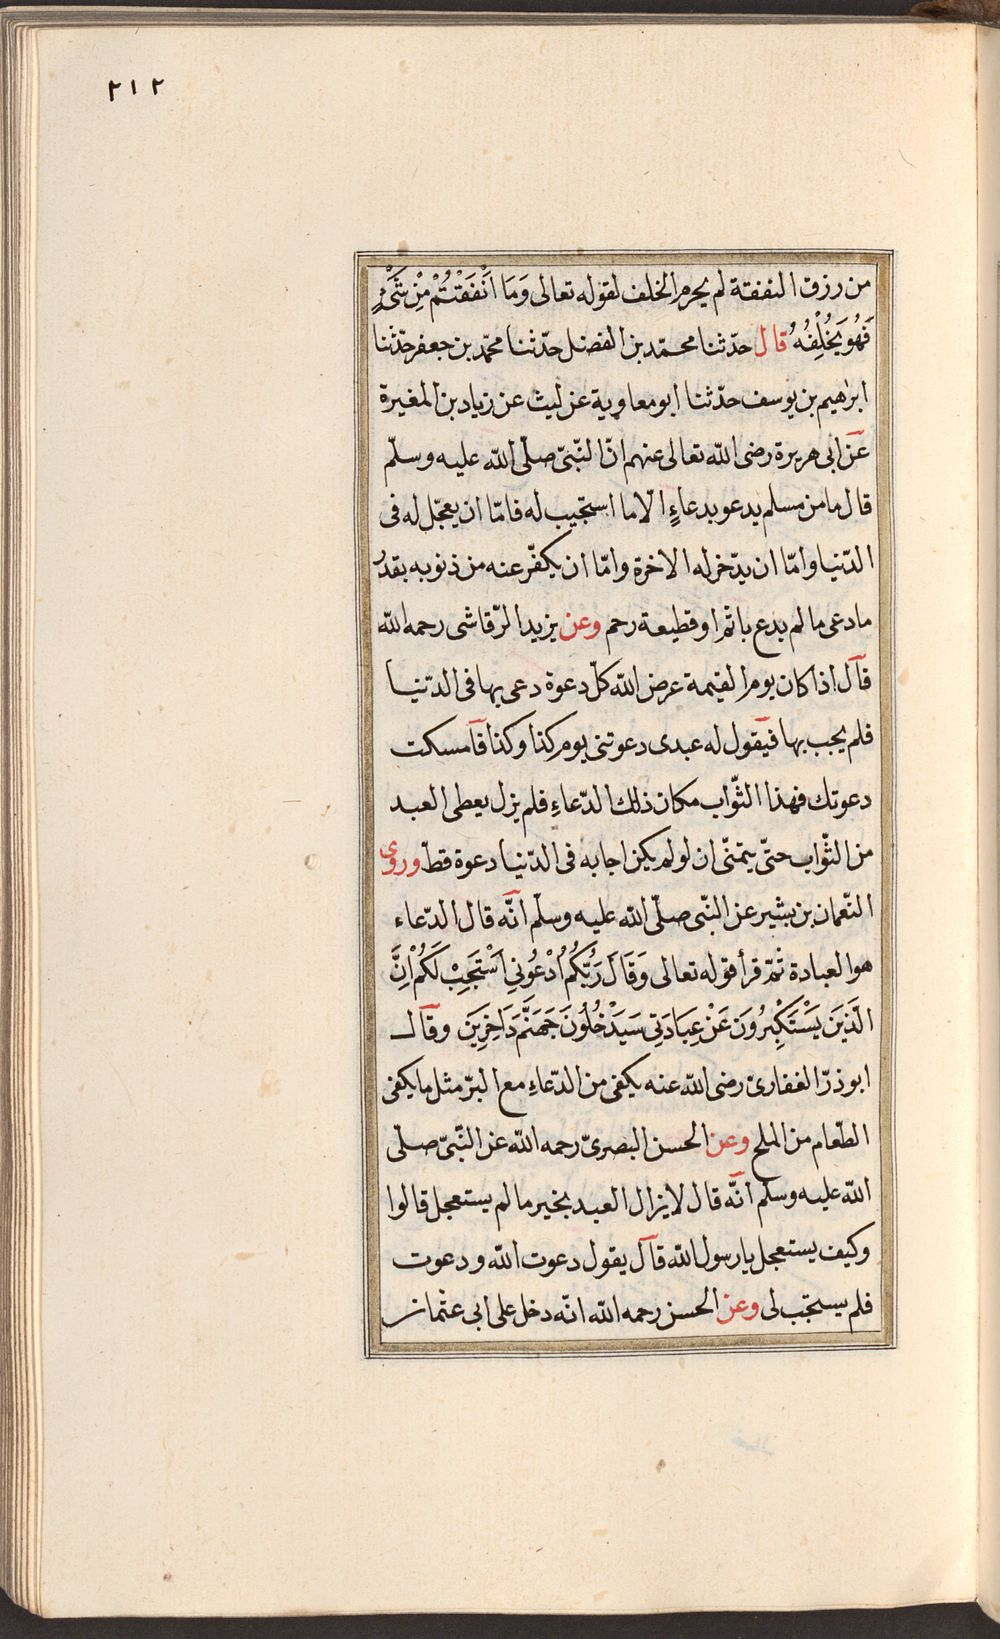 ٢١٢
من رزق النفقة لم يحرم الخلف لقوله تعالى وَمَا اَنْفَقْتُمْ مِنْ شَيْءٍ
فَهُوَ يُخْلِفُهُ قال حدّثنا محمّد بن الفضل حدّثنا محمّد بن جعفر حدّثنا
ابرٰهيم بن يوسف حدّثنا ابو معاوية عن ليث عن زياد بن المغيرة
عن ابى هريرة رضى الله تعالى عنهم انّ النّبىّ صلّى الله عليه وسلّم
قال ما من مسلم يدعو بدعاءٍ الّا ما استجيب له فامّا ان يعجّل له فى
الدّنيا وامّا ان يدّخر له الاخرة وامّا ان يكفّر عنه من ذنوبه بقدر
ما دعى ما لم يدع باثم او قطيعة رحم وعن يزيد الرّقاشى رحمه الله
قال اذا كان يوم القيمة عرض الله كلّ دعوة دعى بها فى الدّنيا
فلم يجب بها فيقول له عبدى دعوتنى يوم كذا وكذا فامسكت
دعوتك فهذا الثّواب مكان ذلك الدّعاء فلم يزل يعطى العبد
من الثّواب حتّى يتمنّى ان لو لم يكن اجابه فى الدّنيا دعوة قطّ وروى
النّعمان بن بشير عن النّبى صلّى الله عليه وسلّم انّه قال الدّعاء
هو العبادة ثمّ قرأ قوله تعالى وَقَالَ رَبُّكُمُ ادْعُونِي اَسْتَجِبْ لَكُمْ اِنَّ
الَّذِينَ يَسْتَكْبِرُونَ عَنْ عِبَادَتِي سَيَدْخُلُونَ جَهَنَّمَ دَاخِرِينَ وقال
ابو ذرّ الغفارىّ رضى الله عنه يكفى من الدّعاء مع البرّ مثل ما يكفى
الطّعام من الملح وعن الحسن البصرىّ رحمه الله عن النّبىّ صلّى
الله عليه وسلّم انّه قال لا يزال العبد بخير ما لم يستعجل قالوا
وكيف يستعجل يا رسول الله قال يقول دعوت الله ودعوت
فلم يستجب لى وعن الحسن رحمه الله انّه دخل على ابى عثمان